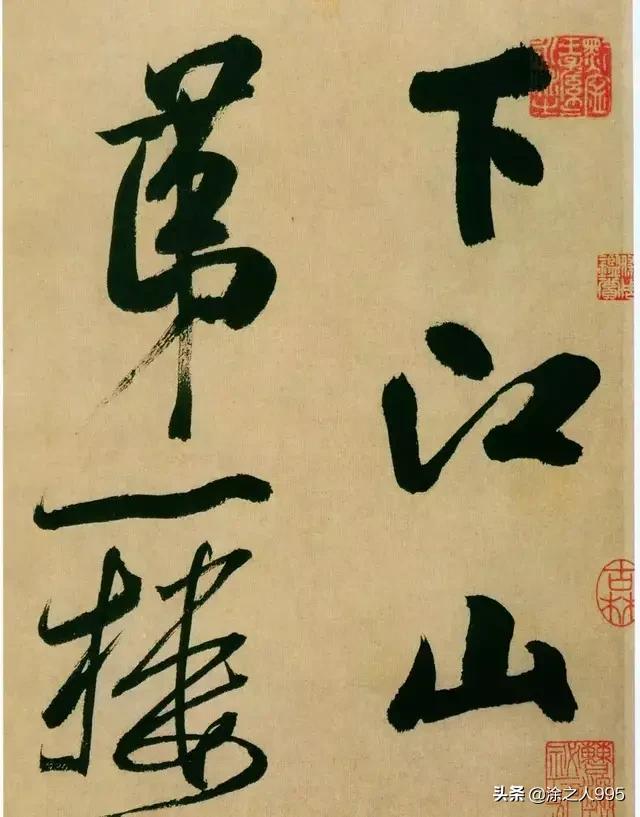 下江山
第一樓
吉林
头条 @涂之人995